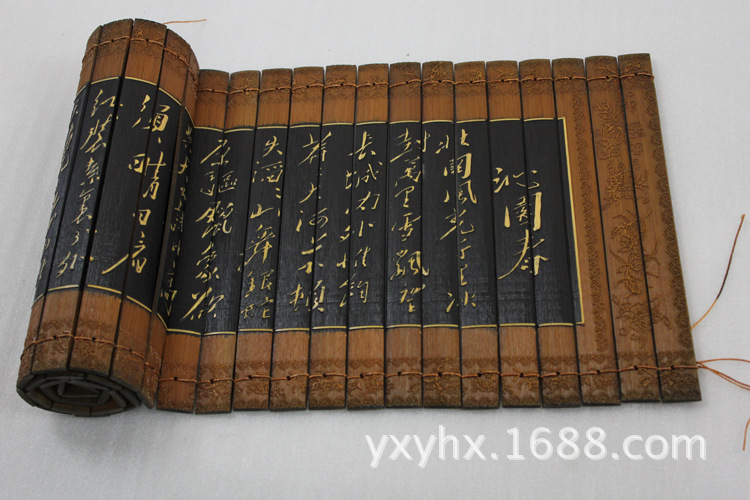 沁園春
北國風光千里冰
封萬里雪飄望
長城內外惟餘
莽々大河上下頓
失滔々山舞銀蛇
原驅蠟象欲
須晴日看
紅裝素裹分外
yxyhx.1688.com